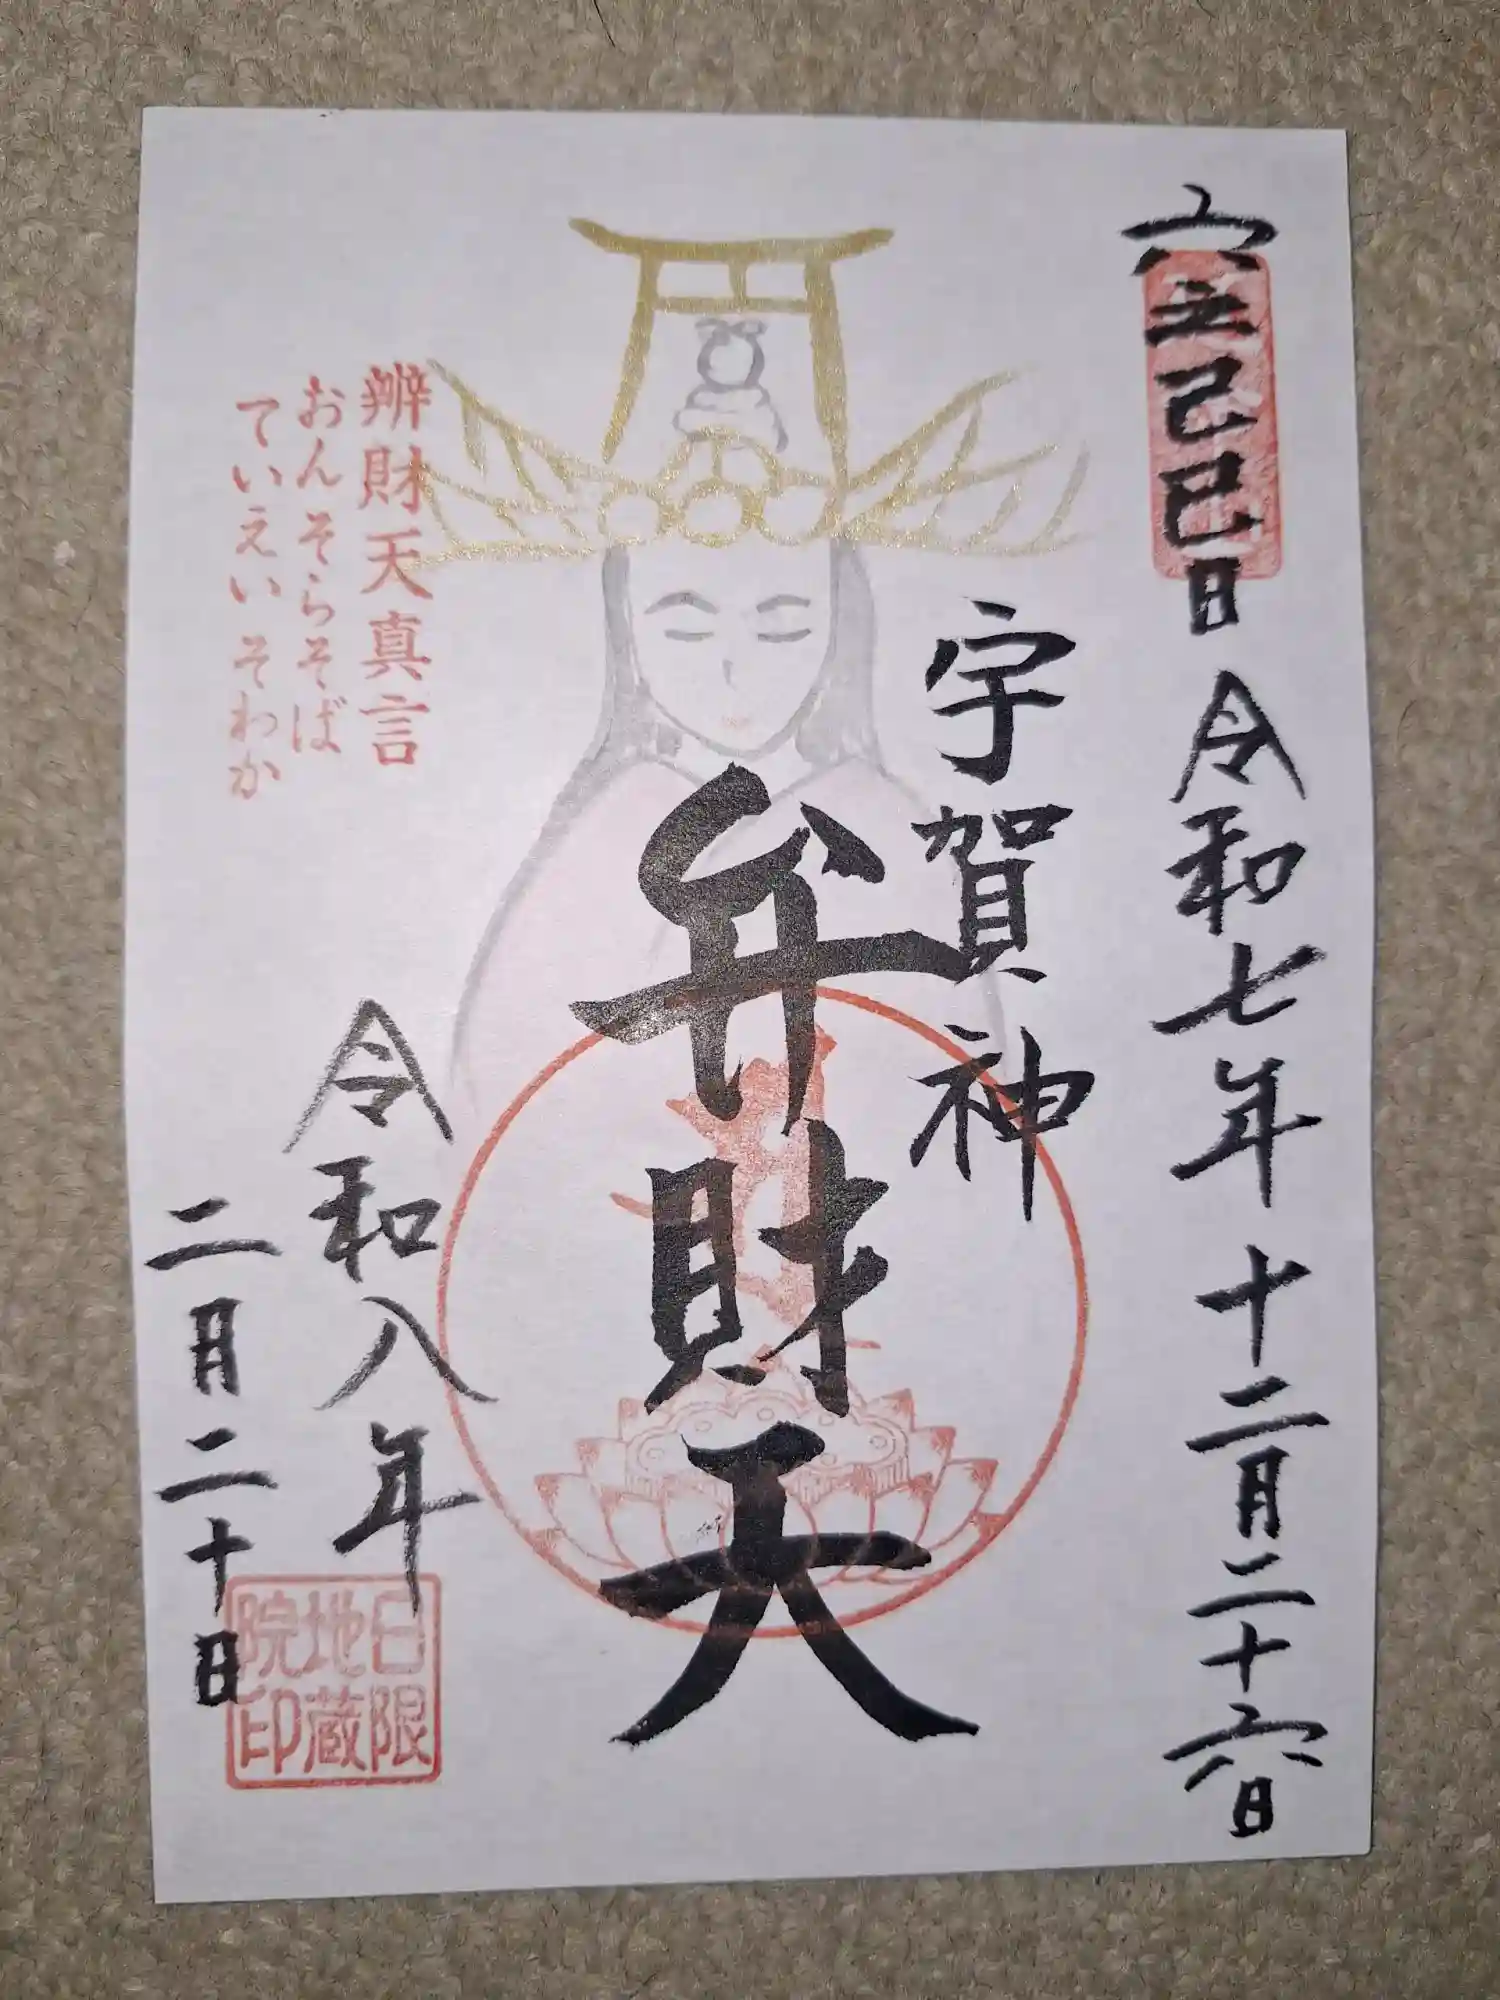 六之己巳日 令和七年十二月二十六日
宇賀神
弁財天
辨財天真言
おんそらそば
ていえいそわか
令和八年
二月二十日
日限
地蔵
院印